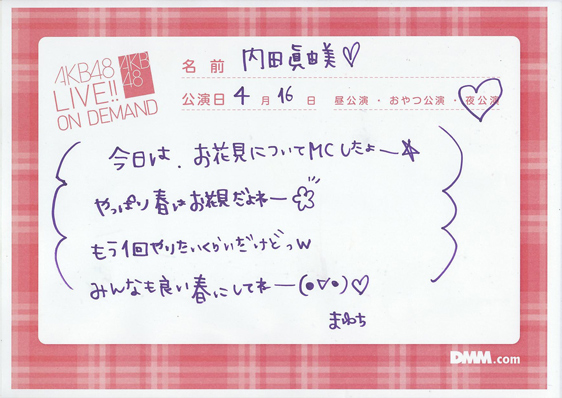 AKB48
LIVE!!
ON DEMAND
AKB
48
名前 内田眞由美♡
公演日 4月16日 昼公演・おやつ公演・夜公演
今日は、お花見についてMCしたよー☆
やっぱり春はお花見だよねー
もう1回やりたいくらいだけどっw
みんなも良い春にしてねー(●∇●)♡
まゆち
DMM.com